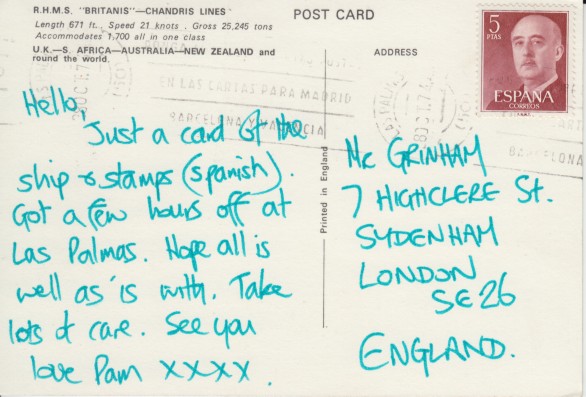 R.H.M.S. "BRITANIS"—CHANDRIS LINES
Length 671 ft., Speed 21 knots, Gross 25,245 tons
Accommodates 1,700 all in one class
U.K.—S. AFRICA—AUSTRALIA—NEW ZEALAND and
round the world.
POST CARD
ADDRESS
5
PTAS
ESPAÑA
CORREOS
EN LAS CARTAS PARA MADRID
BARCELONA Y VALENCIA
BARCELONA
Printed in England
Hello,
Just a card of the
ship & stamps (spanish).
Got a few hours off at
Las Palmas. Hope all is
well as is with. Take
lots of care. See you
love Pam xxxx.
Mr GRINHAM
7 HIGHCLERE St.
SYDENHAM
LONDON
SE26
ENGLAND.